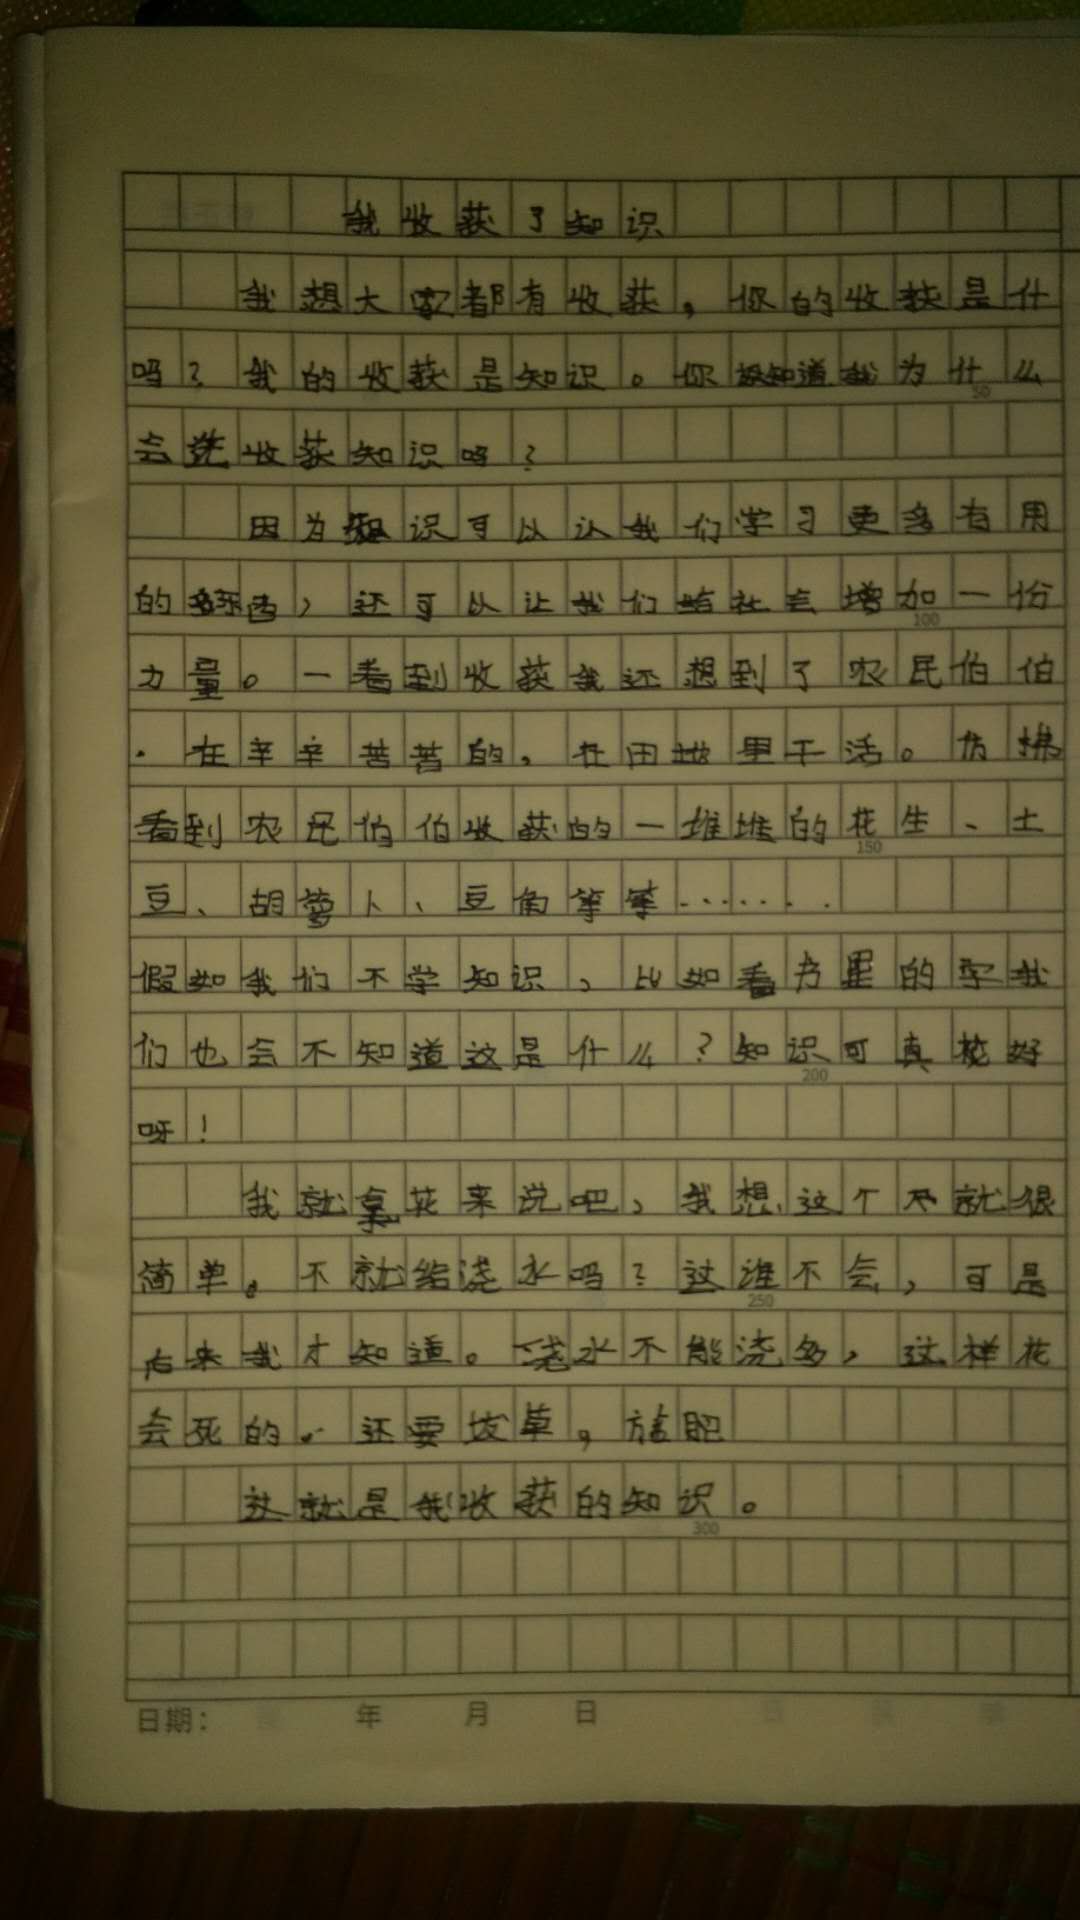 我收获了知识
我想大家都有收获，你的收获是什
吗？我的收获是知识。你知道我为什么
50
会选收获知识吗？
因为知识可以认我们学习更多有用
的东西，还可以让我们给社会增加一份
100
力量。一看到收获我还想到了农民伯伯
．在辛辛苦苦的，在田地里干活。仿拂
看到农民伯伯收获的一堆堆的花生、土
150
豆、胡萝卜、豆角等等……．．
假如我们不学知识，比如看书里的字我
们也会不知道这是什么？知识可真好
200
呀！
我就拿花来说吧，我想这个不就很
简单。不就给浇水吗？这谁不会，可是
250
后来我才知道。浇水不能浇多，这样花
会死的．还要拔草，施肥
这就是我收获的知识。
300
日期： 年 月 日